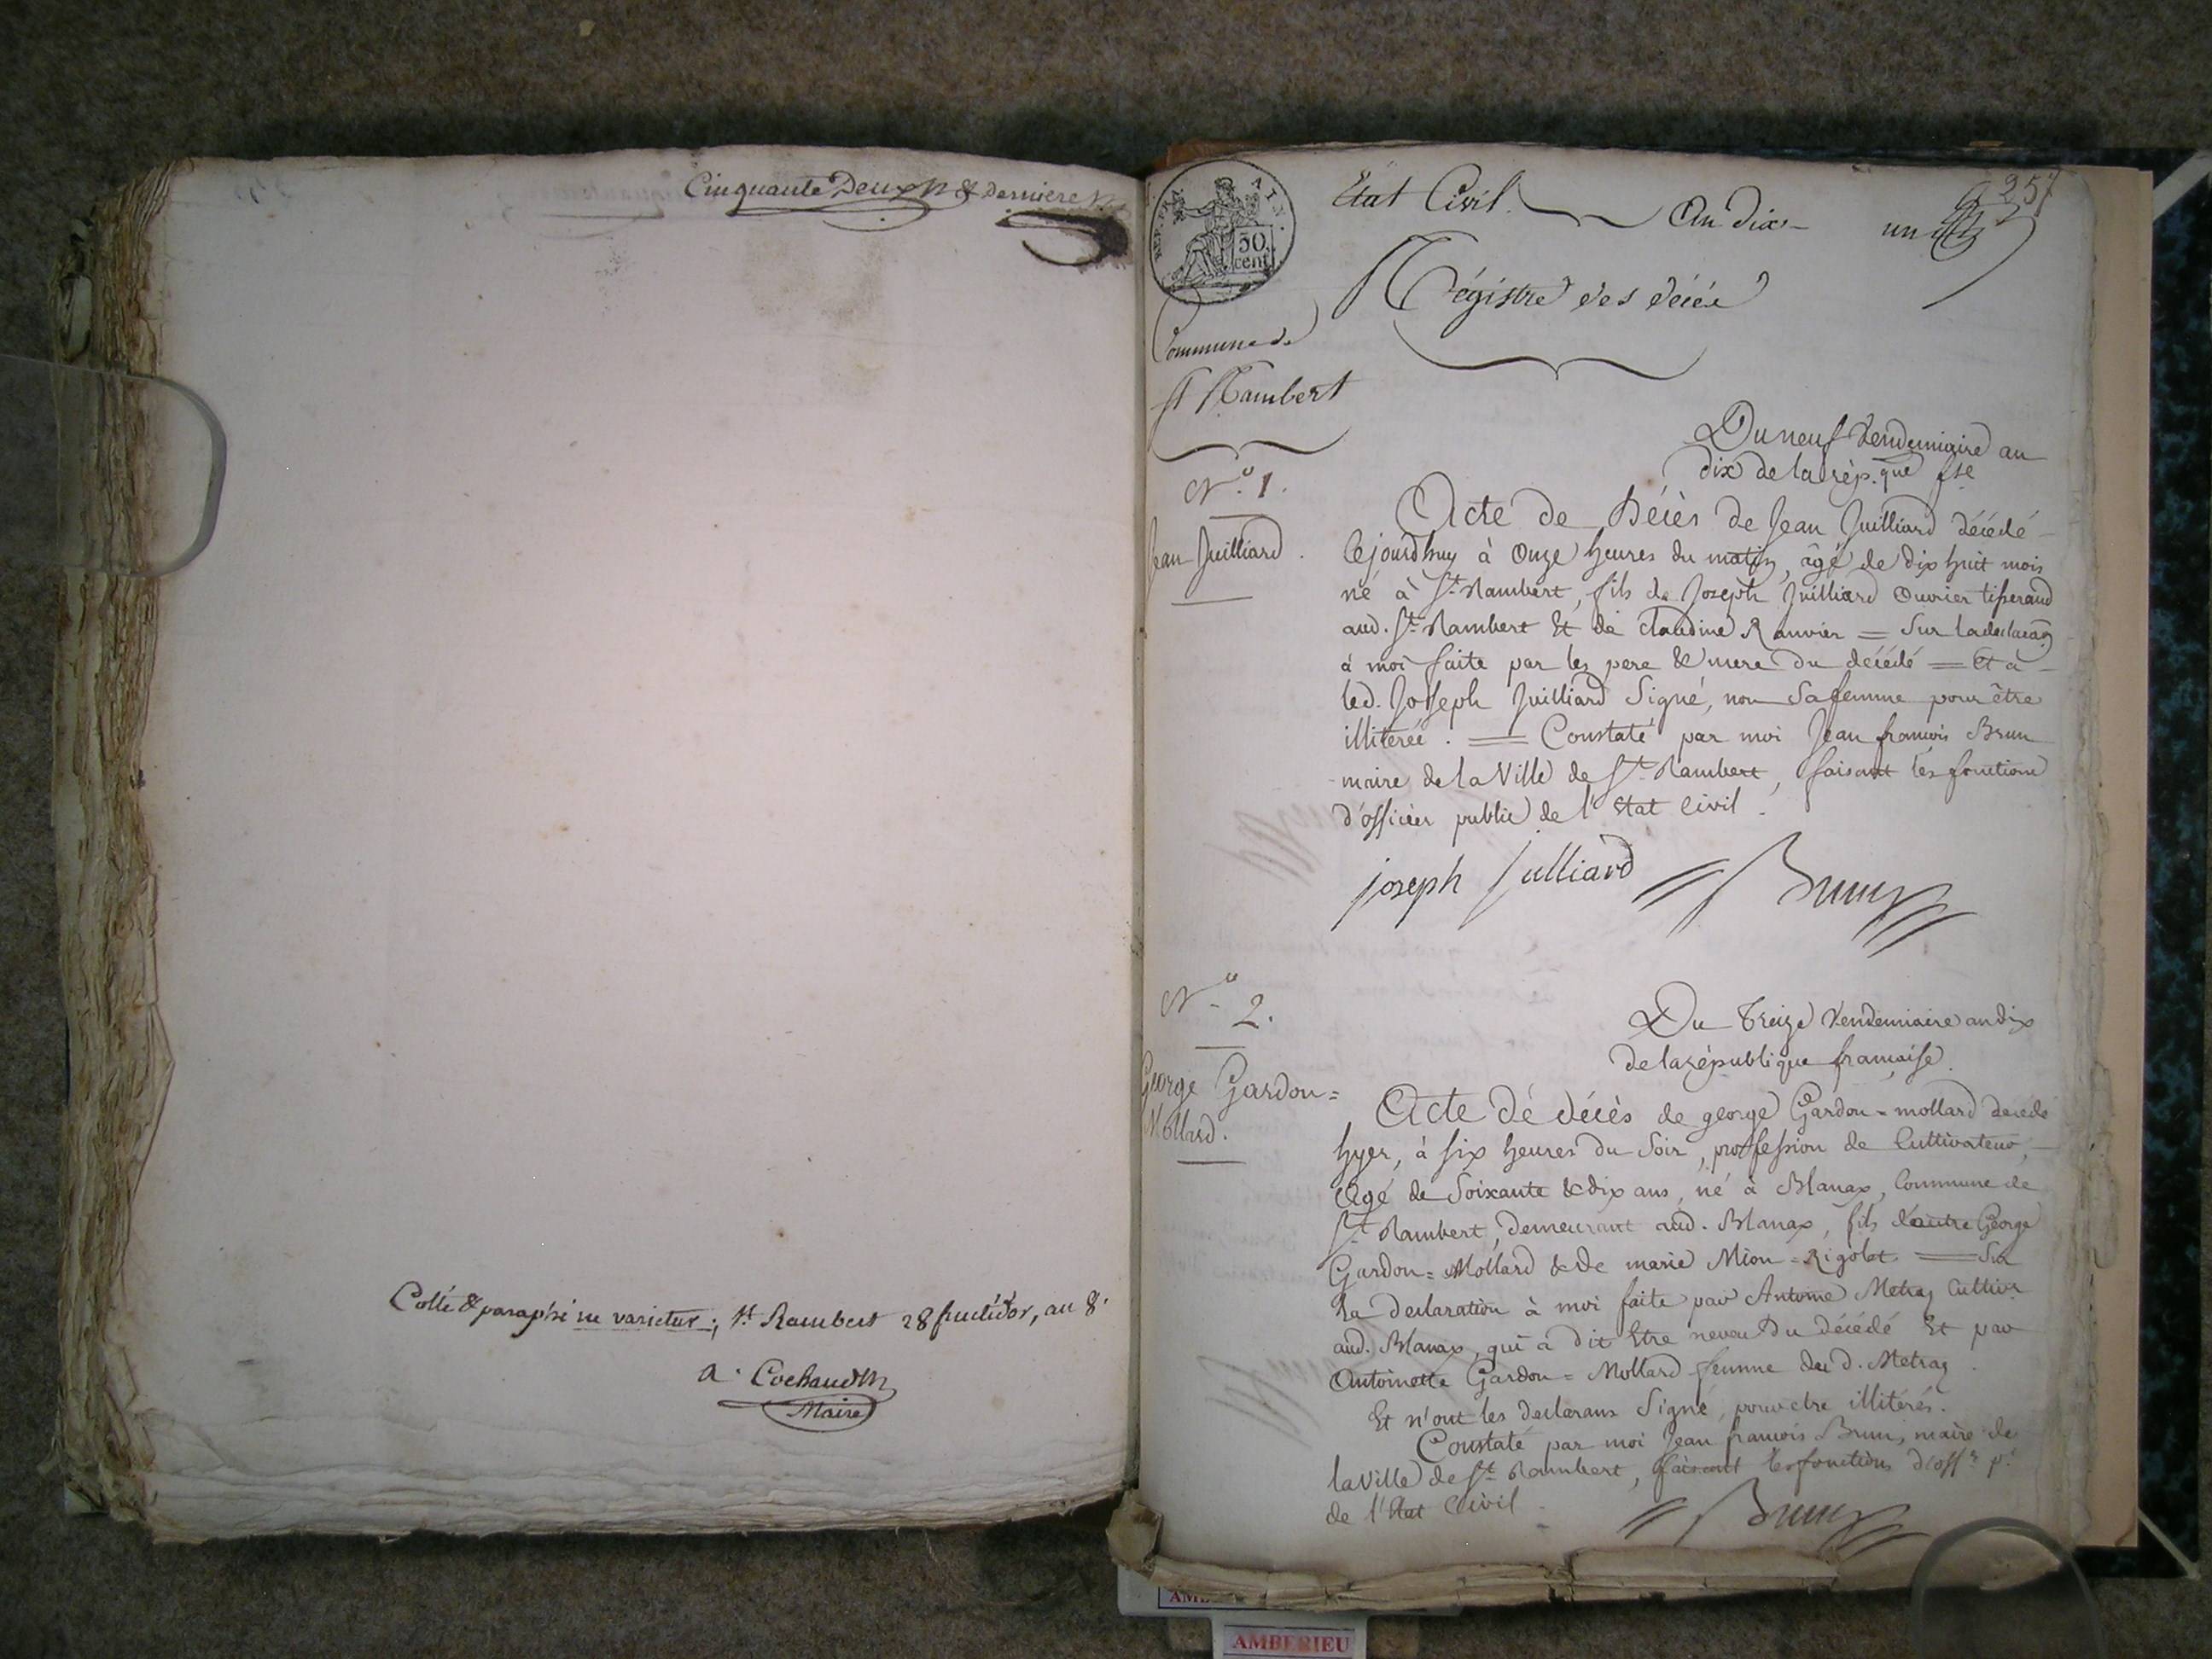 Cinquante Deux & derniere
Cotté & paraphé ne varietur; St. Rambert 28 fructidor, an 8.
A. Cochaud
Maire
REP. FRA. AIN.
50.
cent.
Etat Civil. An dix -
un
257
Régistre des décés
Commune de
St Rambert
Du neuf Vendemiaire an
dix de la rép.que fse
N.o 1.
Jean Juilliard.
Acte de Décès de Jean Juilliard décédé
Cejourdhuy à Onze heures du matin, âgé de dix huit mois
né à St. Rambert, fils de Joseph Juilliard Ouvrier tisserand
aud. St. Rambert Et de Claudine Ranvier = Sur la declaraon
à moi faite par les pere & mere du décédé = Et à
led. Joseph Juilliard Signé, non Sa femme pour être
illiterée. = Constaté par moi Jean françois Brun
maire de la Ville de St. Rambert, faisant les fonctions
d'officier public de l'Etat Civil.
joseph Julliard Brun
N.o 2.
Du Treize Vendemiaire an dix
de la république françaisse.
George Gardon=
Mollard.
Acte dé décès de george Gardon=mollard decedé
hyer, à six heures du Soir, proffession de Cultivateur,
Agé de Soixante & dix ans, né à Blanaz, Commune de
St. Rambert, demeurant aud. Blanaz, fils d'autre George
Gardon=Mollard & de marie Mion=Rigolet = Sur
la declaration à moi faite par Antoine Metraz Cultivr
aud. Blanaz, qui à dit Etre neveu du décédé Et par
Antoinette Gardon=Mollard femme du d. Metraz.
Et n'ont les declarans Signé, pour être illitérés.
Constaté par moi Jean françois Brun, maire de
la Ville de St. Rambert, faisant les fonctions d'offr. p.
de l'Etat Civil.
Brun
AMBERIEU